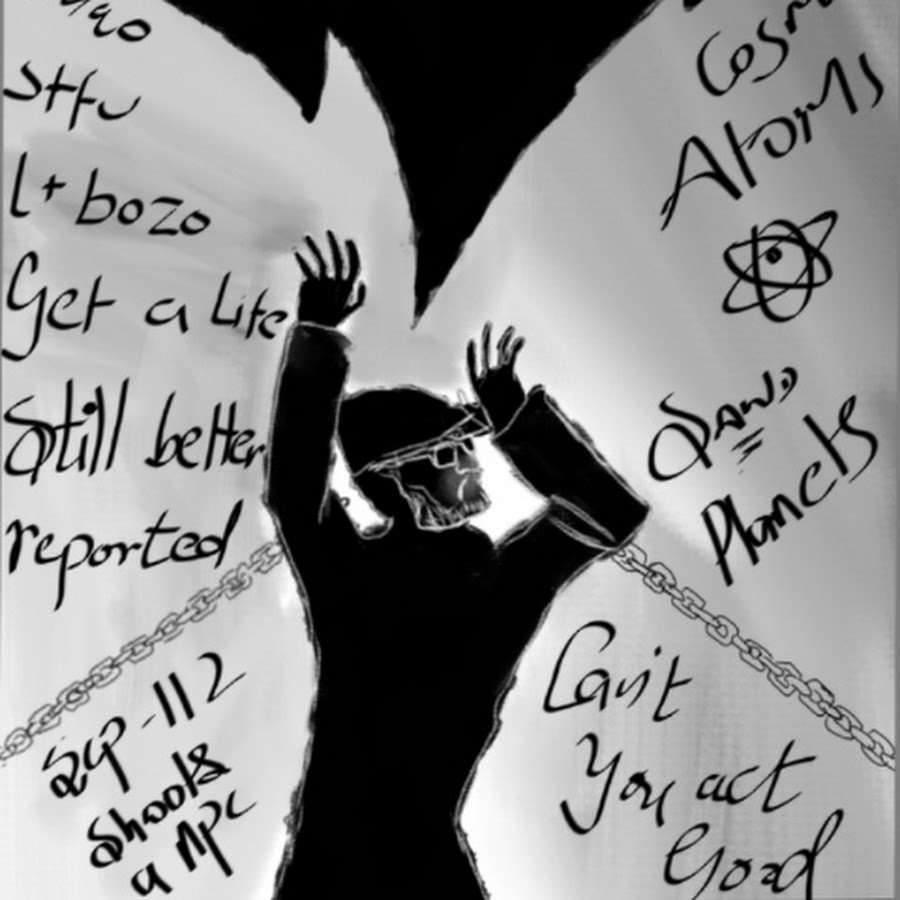 Stfu
l+ bozo
Get a Life
Still better
reported
Scp-112
Shoots
a npc
Cosm
Atoms
Planets
Can't
You act
Good